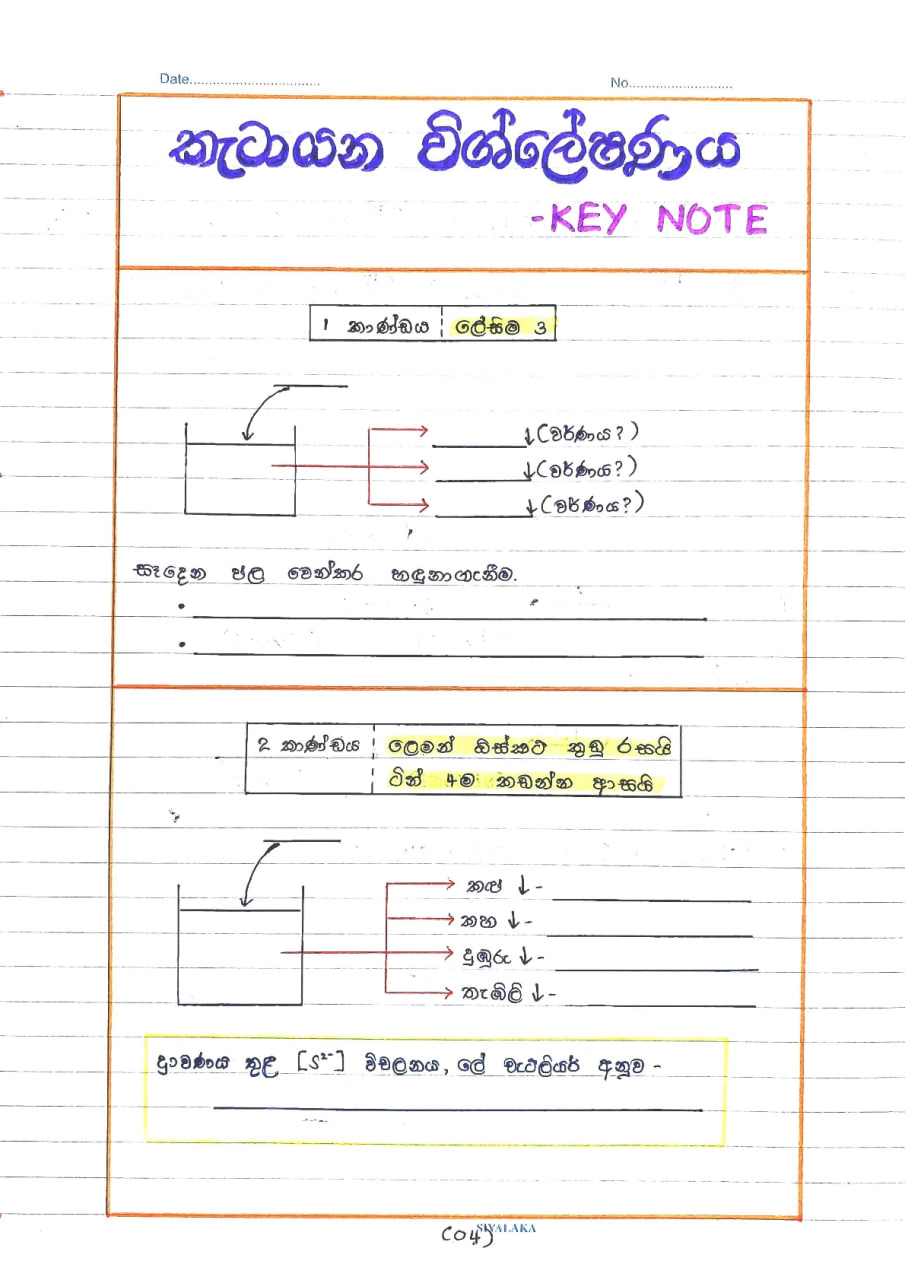 Date.................................. No............................
කැටායන විශ්ලේෂණය
-KEY NOTE
1 කාණ්ඩය ලේසිම 3
↓(වර්ණය?)
↓(වර්ණය?)
↓(වර්ණය?)
සෑදෙන ඵල වෙන්කර හඳුනාගැනීම.
2 කාණ්ඩය ලෙමන් බිස්කට් කුඩු රසයි
ටින් 4ම කඩන්න ආසයි
කළු ↓ -
කහ ↓ -
දුඹුරු ↓ -
තැඹිලි ↓ -
ද්‍රාවණය තුළ [S²⁻] විචලනය, ලේ චැටලියර් අනුව -
(04)
SIYALAKA